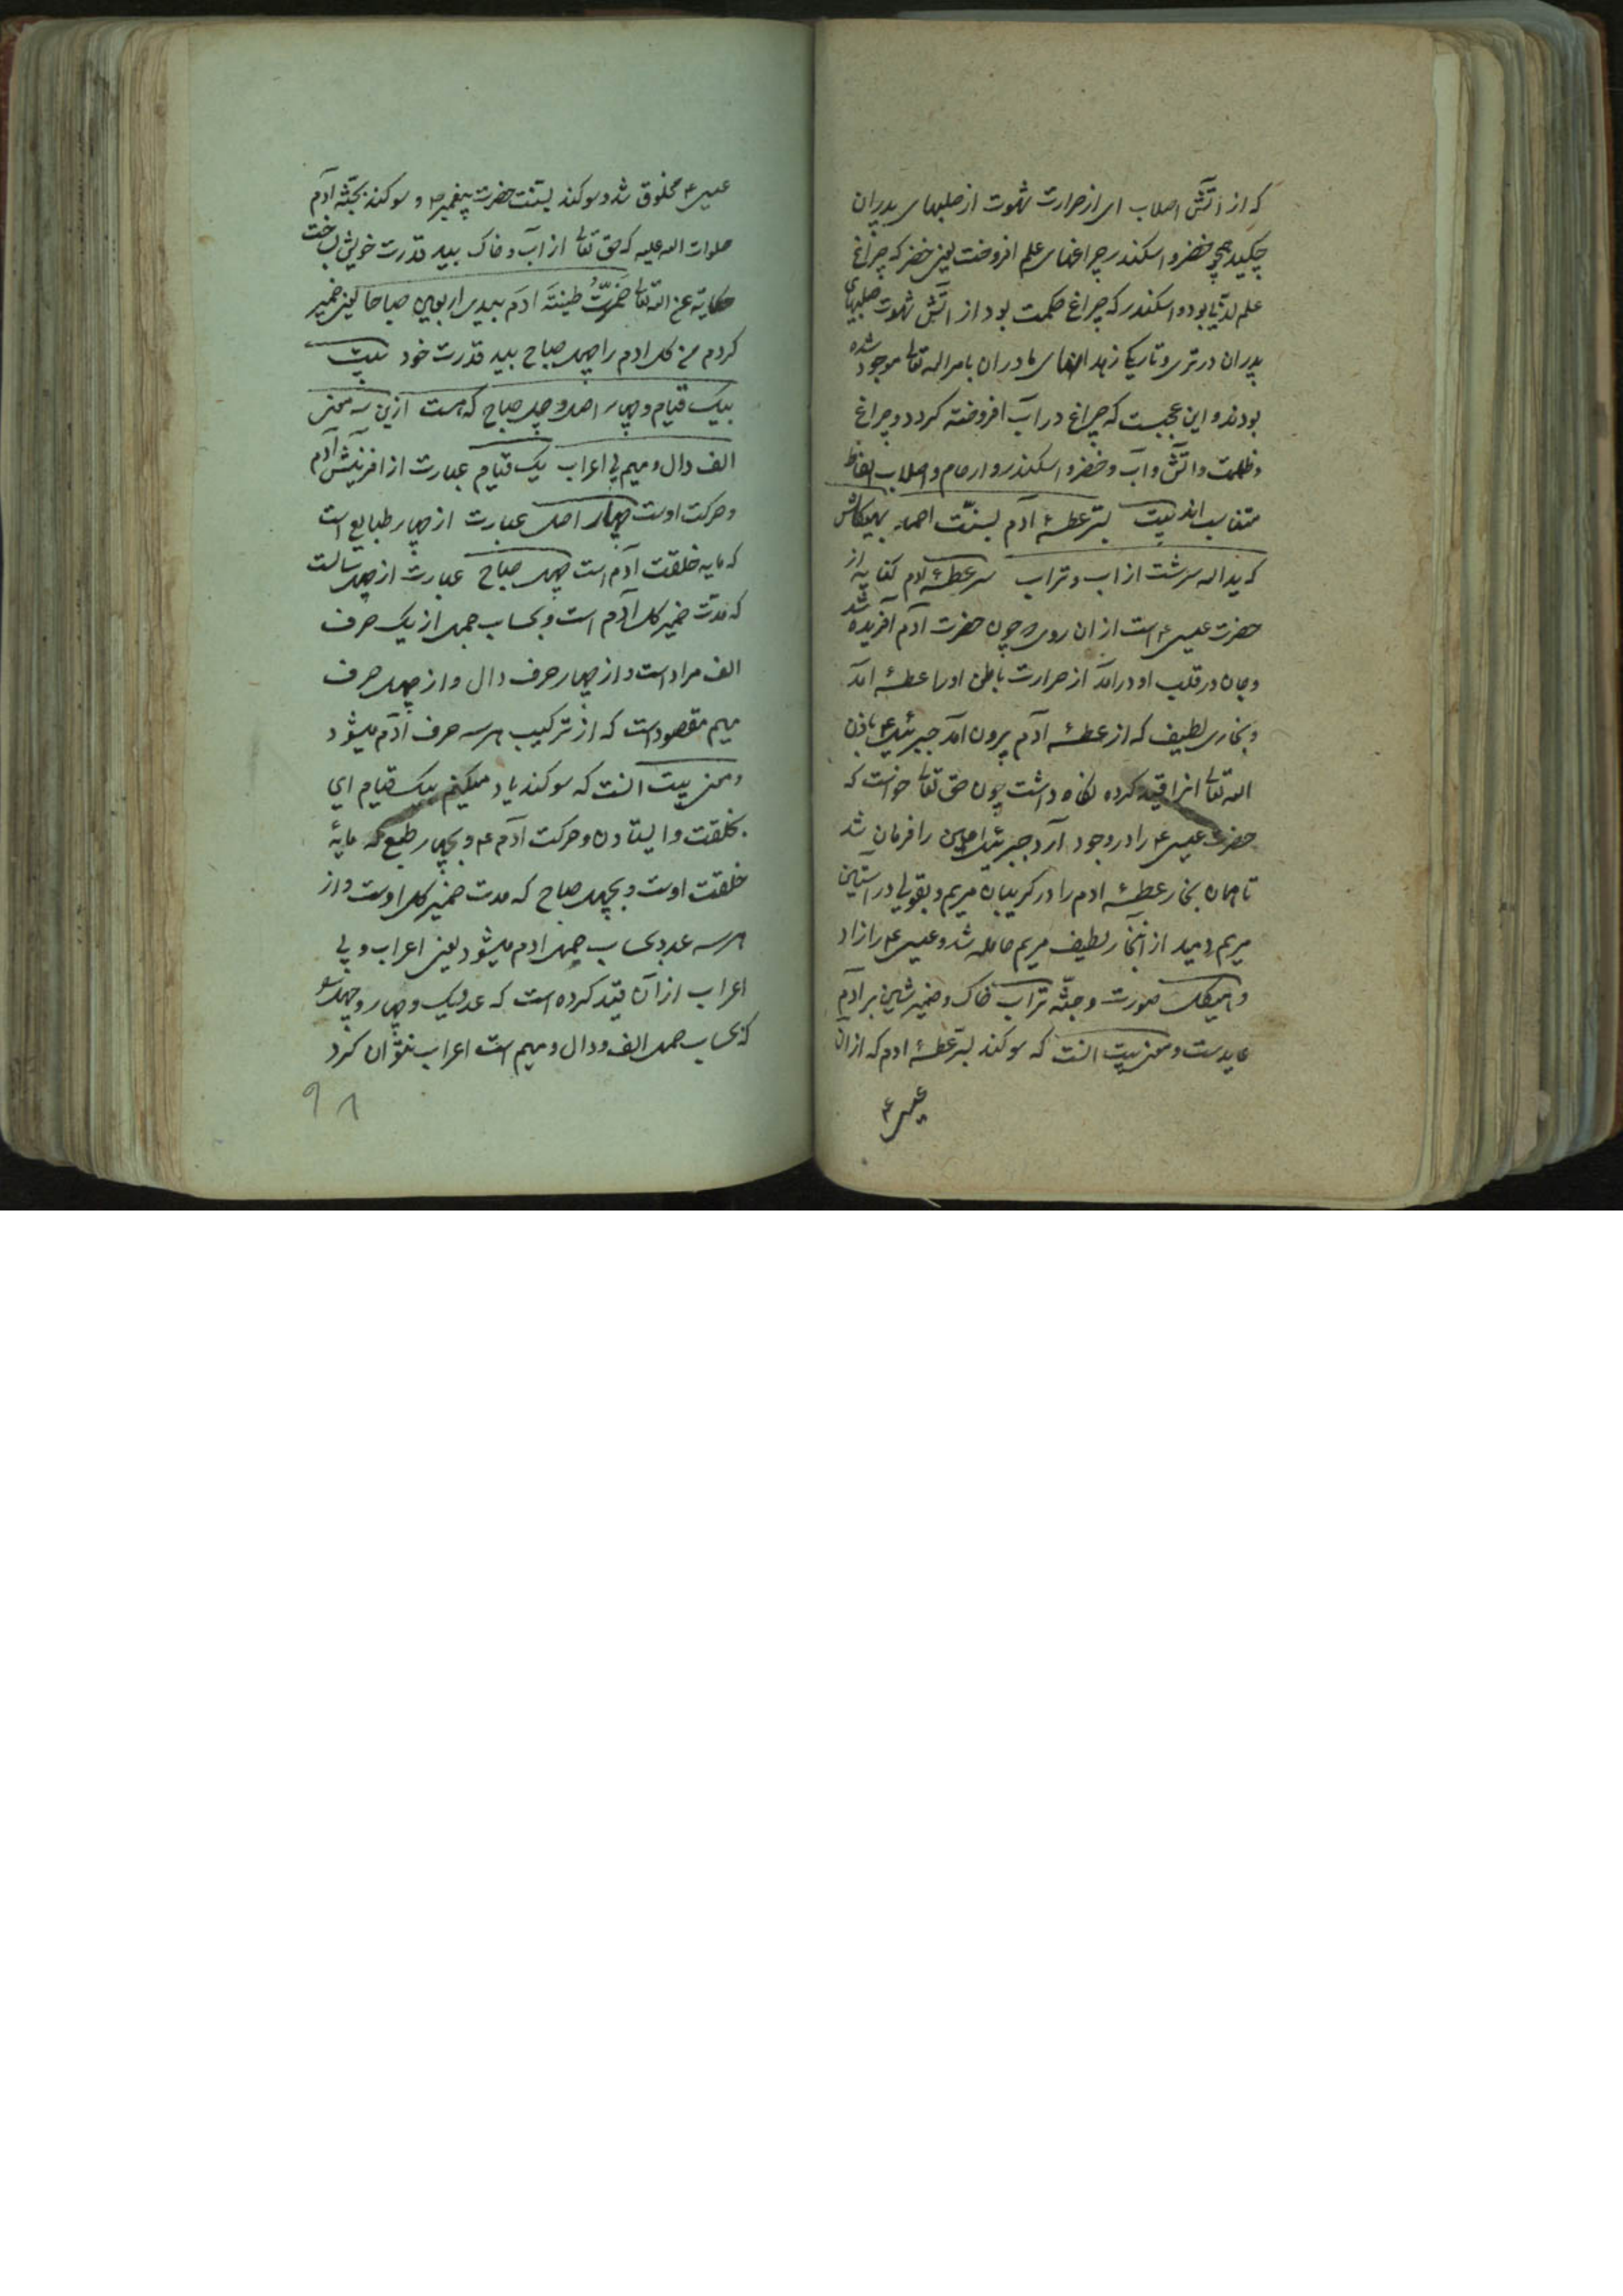 که از آتش اصلاب ای از حرارت شهوت از صلبهای پدران
چکید همچو خضر و اسکندر چراغهای علم افروخت یعنی خضر که چراغ
علم لدنی بود و اسکندر که چراغ حکمت بود از آتش شهوت صلبهای
پدران در تری و تاریکی زهدانهای مادران بامر اله تعالی موجود شده
بودند و این عجبست که چراغ در آب افروخته کردد و چراغ
و ظلمت و آتش و آب و خضر و اسکندر و ارحام و اصلاب الفاظ
متناسب اند بیت بسر عطسهٔ آدم بسنّت احمد بهیکلش
که ید اله سرشت از اب و تراب سر عطسهٔ ادم کنایه از
حضرت عیسی ع است از ان روی چون حضرت آدم آفریده شد
و جان در قلب او درآمد از حرارت باطن او را عطسه آمد
و بخاری لطیف که از عطسه آدم بیرون آمد جبرئیل ع باذن
اله تعالی انرا قید کرده نکاه داشت چون حق تعالی خواست که
حضرت عیسی ع را در وجود آرد جبرئیل امین را فرمان شد
تا همان بخار عطسه ادم را در کریبان مریم و بقولی در آستین
مریم دمید از آن بخار لطیف مریم حامله شد و عیسی ع را زاد
و هیکل صورت و جثّه تراب خاک و ضمیر شین بر آدم
عایدست و معنی بیت انست که سوکند بسر عطسهٔ ادم که از ان
عیسی ع
عیسی ع مخلوق شد و سوکند بسنت حضرت پیغمبر ص و سوکند بجثّه آدم
صلوات اله علیه که حق تعالی از آب و خاک بید قدرت خویش ساخت
حکایة عن اله تعالی خمّرتُ طینةَ ادم بیدی اربعین صباحا یعنی خمیر
کردم من کل ادم را چهل صباح بید قدرت خود بیت
بیک قیام و چهار اصل و چل صباح که هست ازین سه معنی
الف دال و میم بی اعراب یک قیام عبارت از آفرینش آدم
و حرکت اوست چهار اصل عبارت از چهار طبایع است
که مایه خلقت آدم است چهل صباح عبارت از چهل سالست
که مدت خمیر کل آدم است و بحساب جمل از یک حرف
الف مراد است و از چهار حرف دال و از چهل حرف
میم مقصود است که از ترکیب هر سه حرف آدم میشود
و معنی بیت انست که سوکند یاد میکنم بیک قیام ای
بخلقت و ایستادن و حرکت آدم ع و بچهار طبع که مایهٔ
خلقت اوست و بچهل صباح که مدت خمیر کل اوست و از
هر سه عدد بحساب جمل ادم میشود یعنی اعراب و بی
اعراب از آن قید کرده است که عدد یک و چهار و چهل
که بحساب جمل الف و دال و میم است اعراب نتوان کرد